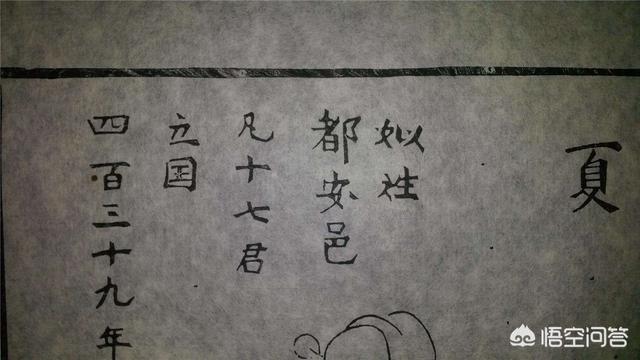 夏
姒姓
都安邑
凡十七君
立国
四百三十九年
悟空问答